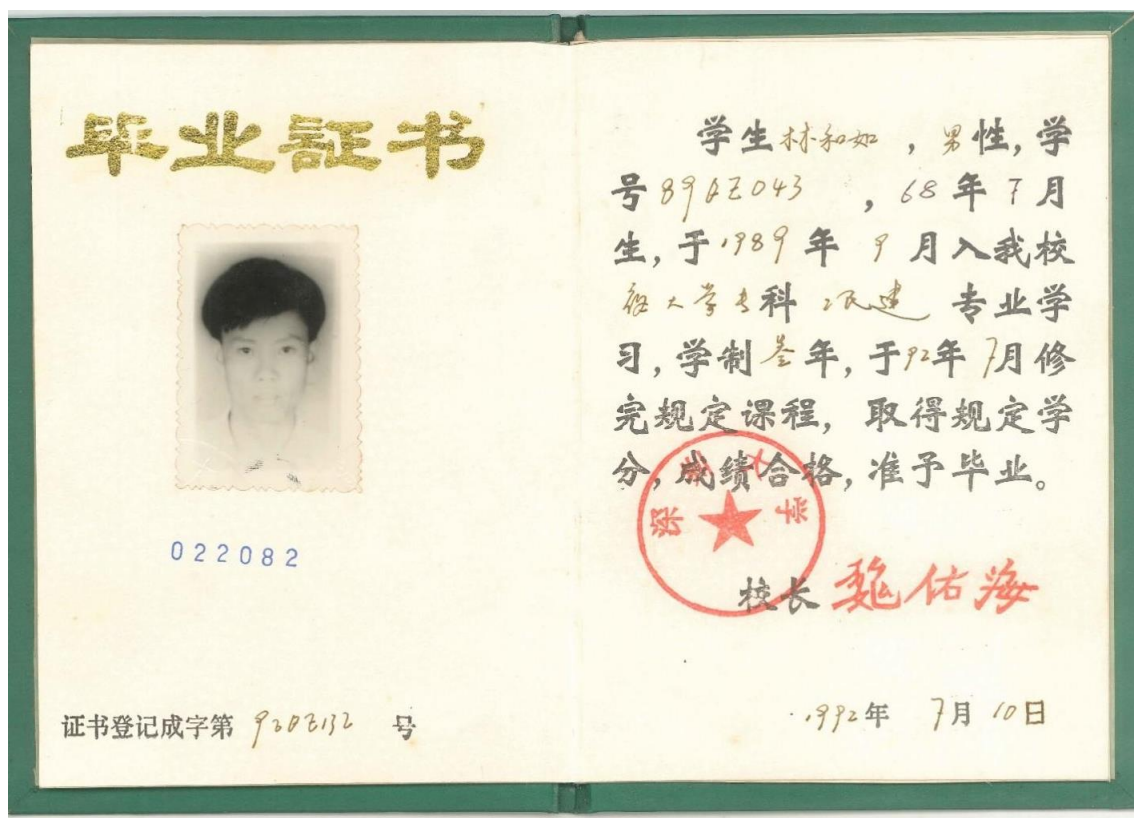 毕业証书
022082
证书登记成字第 920Z132 号
学生林和如，男性，学
号 89AZ043 ，68年7月
生，于1989年 9月入我校
大学专科 民建 专业学
习，学制叁年，于92年7月修
完规定课程，取得规定学
分，成绩合格，准予毕业。
深圳大学
校长 魏佑海
1992年 7月10日